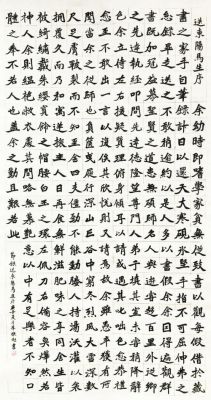 送東陽馬生序 余幼時即嗜學家貧無從致書以觀每假借於藏
書之家手自筆錄計日以還天大寒硯冰堅手指不可屈伸弗之
怠錄畢走送之不敢稍逾約以是人多以書假余余因得遍觀群
書既加冠益慕聖賢之道又患無碩師名人與遊嘗趨百里外從鄉
之先達執經叩問先達德隆望尊門人弟子填其室未嘗稍降辭
色余立侍左右援疑質理俯身傾耳以請或遇其叱咄色愈恭禮
愈至不敢出一言以復俟其欣悅則又請焉故余雖愚卒獲有所
聞當余之從師也負篋曳屣行深山巨谷中窮冬烈風大雪深數
尺足膚皸裂而不知至舍四支僵勁不能動媵人持湯沃灌以衾
擁覆久而乃和寓逆旅主人日再食無鮮肥滋味之享同舍生皆
被綺繡戴朱纓寶飾之帽腰白玉之環左佩刀右備容臭燁然若
神人余則縕袍敝衣處其間略無慕艷意以中有足樂者不知口
體之奉不若人也蓋余之勤且艱若此
節錄送東陽馬生序